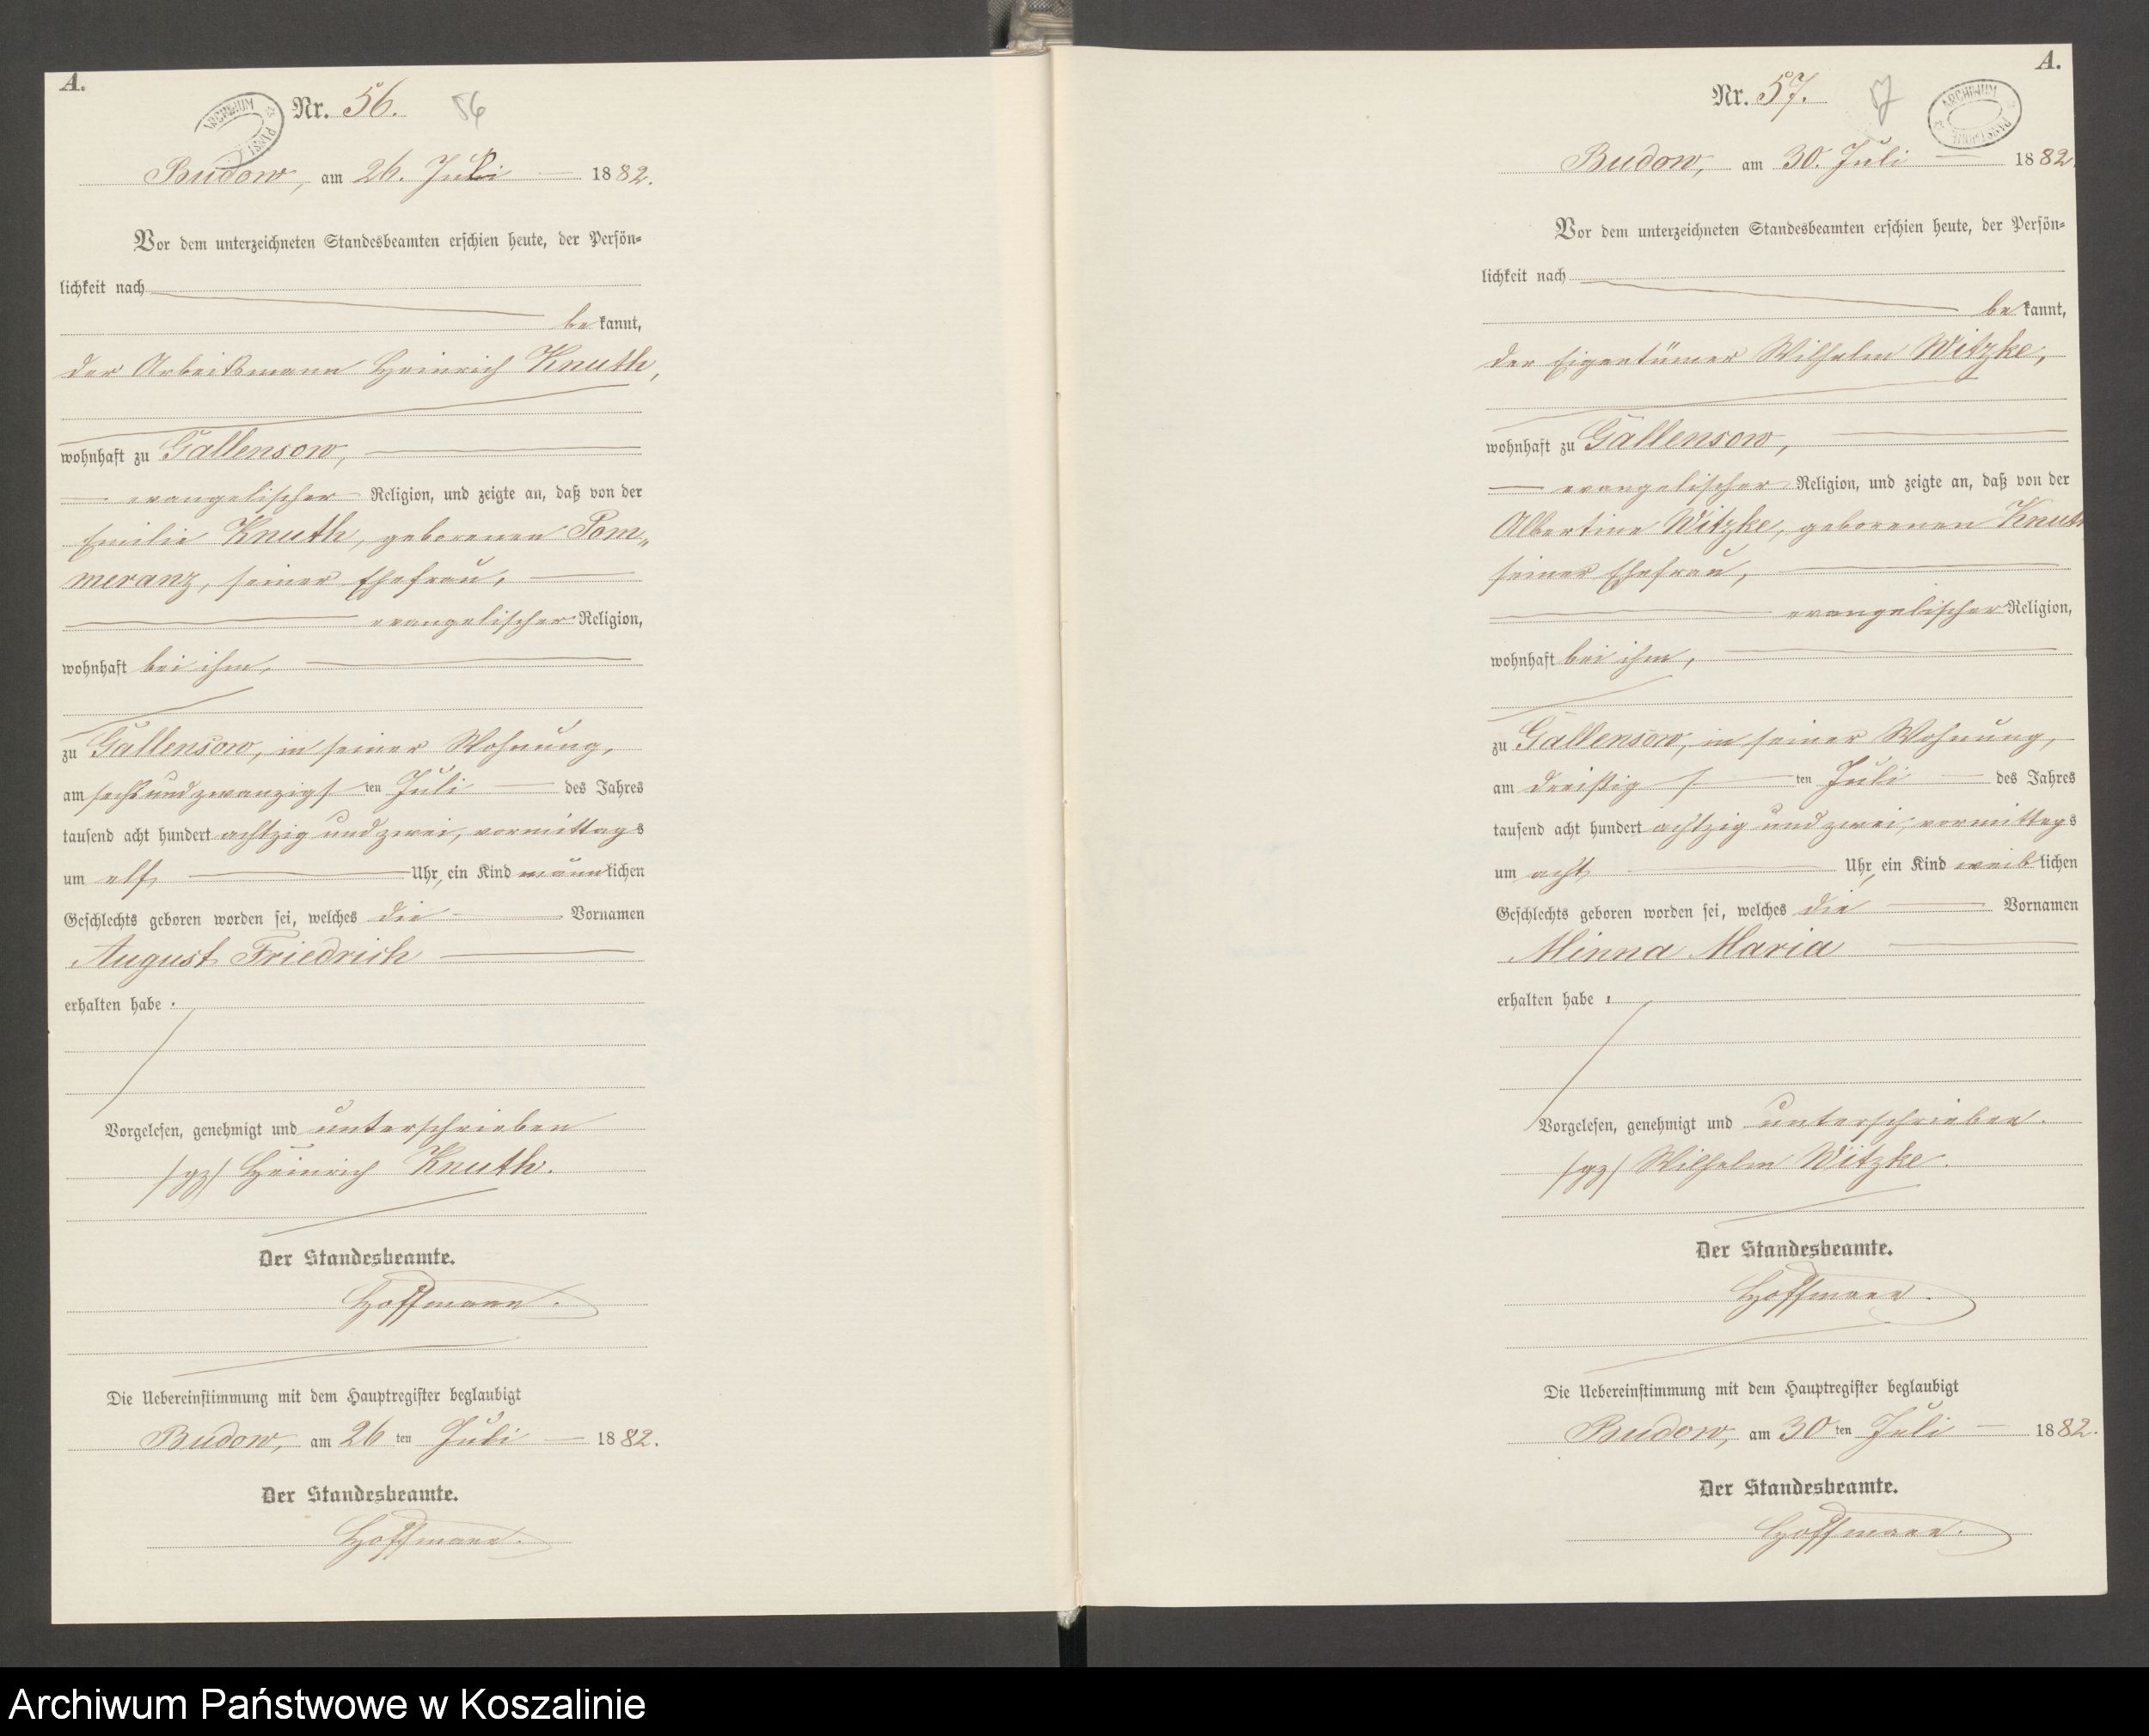 A.
ARCHIWUM PAŃSTW
Nr. 56. 56
Budow, am 26. Juli 1882.
Vor dem unterzeichneten Standesbeamten erschien heute, der Persön=
lichkeit nach
be kannt,
der Arbeitsmann Heinrich Knuth,
wohnhaft zu Gallensow,
evangelischer Religion, und zeigte an, daß von der
Emilie Knuth, geborenen Pom„
meranz, seiner Ehefrau,
evangelischer Religion,
wohnhaft bei ihm,
zu Gallensow, in seiner Wohnung,
am sechsundzwanzigsten Juli des Jahres
tausend acht hundert achtzig und zwei, vormittags
um elf Uhr, ein Kind männlichen
Geschlechts geboren worden sei, welches die Vornamen
August Friedrich
erhalten habe.
Vorgelesen, genehmigt und unterschrieben
/gz/ Heinrich Knuth.
Der Standesbeamte.
Hoffmann.
Die Uebereinstimmung mit dem Hauptregister beglaubigt
Budow, am 26 ten Juli 1882.
Der Standesbeamte.
Hoffmann.
A.
Nr. 57. 57
ARCHIWUM PAŃSTWOWE
Budow, am 30. Juli 1882
Vor dem unterzeichneten Standesbeamten erschien heute, der Persön=
lichkeit nach
be kannt,
der Eigentümer Wilhelm Witzke,
wohnhaft zu Gallensow,
evangelischer Religion, und zeigte an, daß von der
Albertine Witzke, geborenen Knuth
seiner Ehefrau,
evangelischer Religion,
wohnhaft bei ihm,
zu Gallensow, in seiner Wohnung,
am dreißigsten Juli des Jahres
tausend acht hundert achtzig und zwei, vormittags
um acht Uhr, ein Kind weiblichen
Geschlechts geboren worden sei, welches die Vornamen
Minna Maria
erhalten habe.
Vorgelesen, genehmigt und unterschrieben.
/gz/ Wilhelm Witzke.
Der Standesbeamte.
Hoffmann.
Die Uebereinstimmung mit dem Hauptregister beglaubigt
Budow, am 30 ten Juli 1882.
Der Standesbeamte.
Hoffmann.
Archiwum Państwowe w Koszalinie